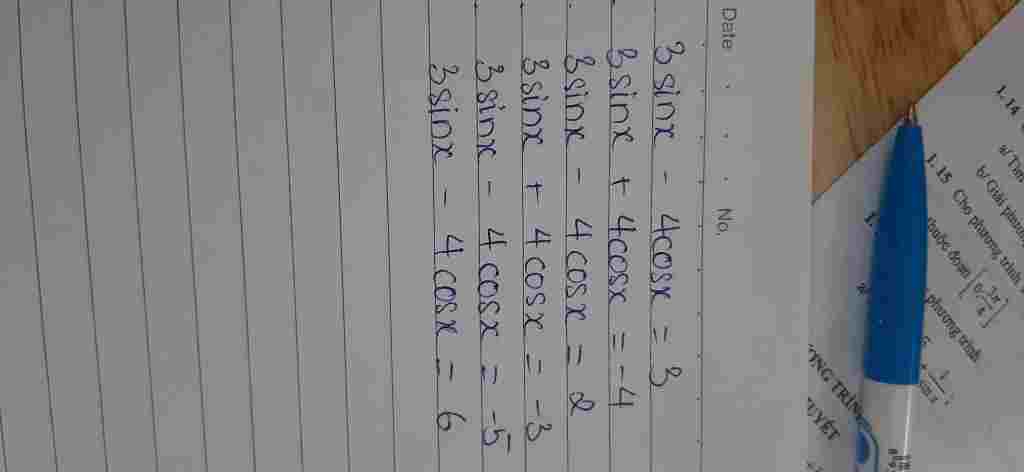 Date
No.
3sinx - 4cosx = 3
3sinx + 4cosx = -4
3sinx - 4cosx = 2
3sinx + 4cosx = -3
3sinx - 4cosx = -5
3sinx - 4cosx = 6
1.14
a/ Tìm
b/ Giải phương
1.15 Cho phương trình
thuộc đoạn [0; 
phương trình
TRÌNH